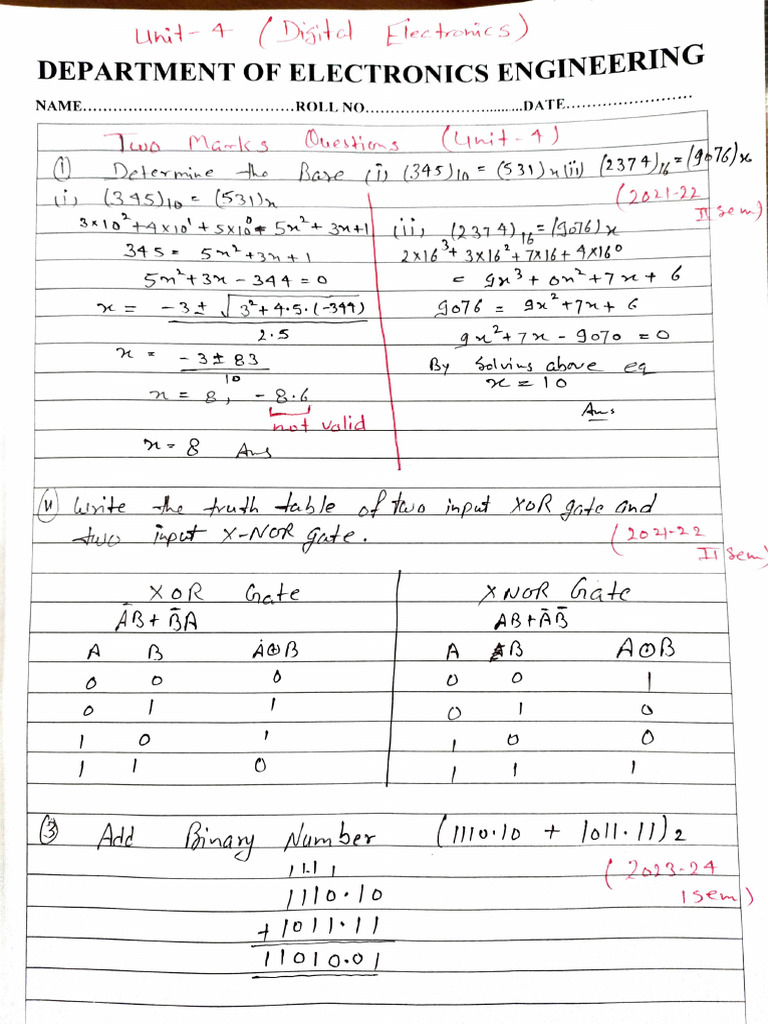 Unit-4 (Digital Electronics)
DEPARTMENT OF ELECTRONICS ENGINEERING
NAME.......................................ROLL NO..............................DATE........................
Two Marks Questions (Unit-4)
① Determine the Base (i) (345)₁₀ = (531)x (ii) (2374)₁₆ = (9076)x
(2021-22 II sem)
(i) (345)₁₀ = (531)x
3×10² + 4×10¹ + 5×10⁰ = 5x² + 3x + 1
345 = 5x² + 3x + 1
5x² + 3x - 344 = 0
x = -3 ± √3² + 4.5.(-344) / 2.5
x = -3 ± 83 / 10
x = 8, -8.6
not valid
x = 8 Ans
(ii) (2374)₁₆ = (9076)x
2×16³ + 3×16² + 7×16 + 4×16⁰
= 9x³ + 0x² + 7x + 6
9076 = 9x² + 7x + 6
9x² + 7x - 9070 = 0
By Solving above eq
x = 10
Ans
Write the truth table of two input XOR gate and
two input X-NOR gate.
(2021-22 II sem)
XOR Gate
ĀB + B̄A
A B A⊕B
0 0 0
0 1 1
1 0 1
1 1 0
XNOR Gate
AB + ĀB̄
A B A⊙B
0 0 1
0 1 0
1 0 0
1 1 1
③ Add Binary Number (1110.10 + 1011.11)₂
(2023-24 I sem)
11.1 1
1110.10
+ 1011.11
11010.01